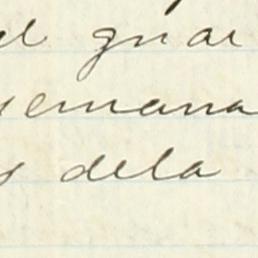 el guar
semana
y dela